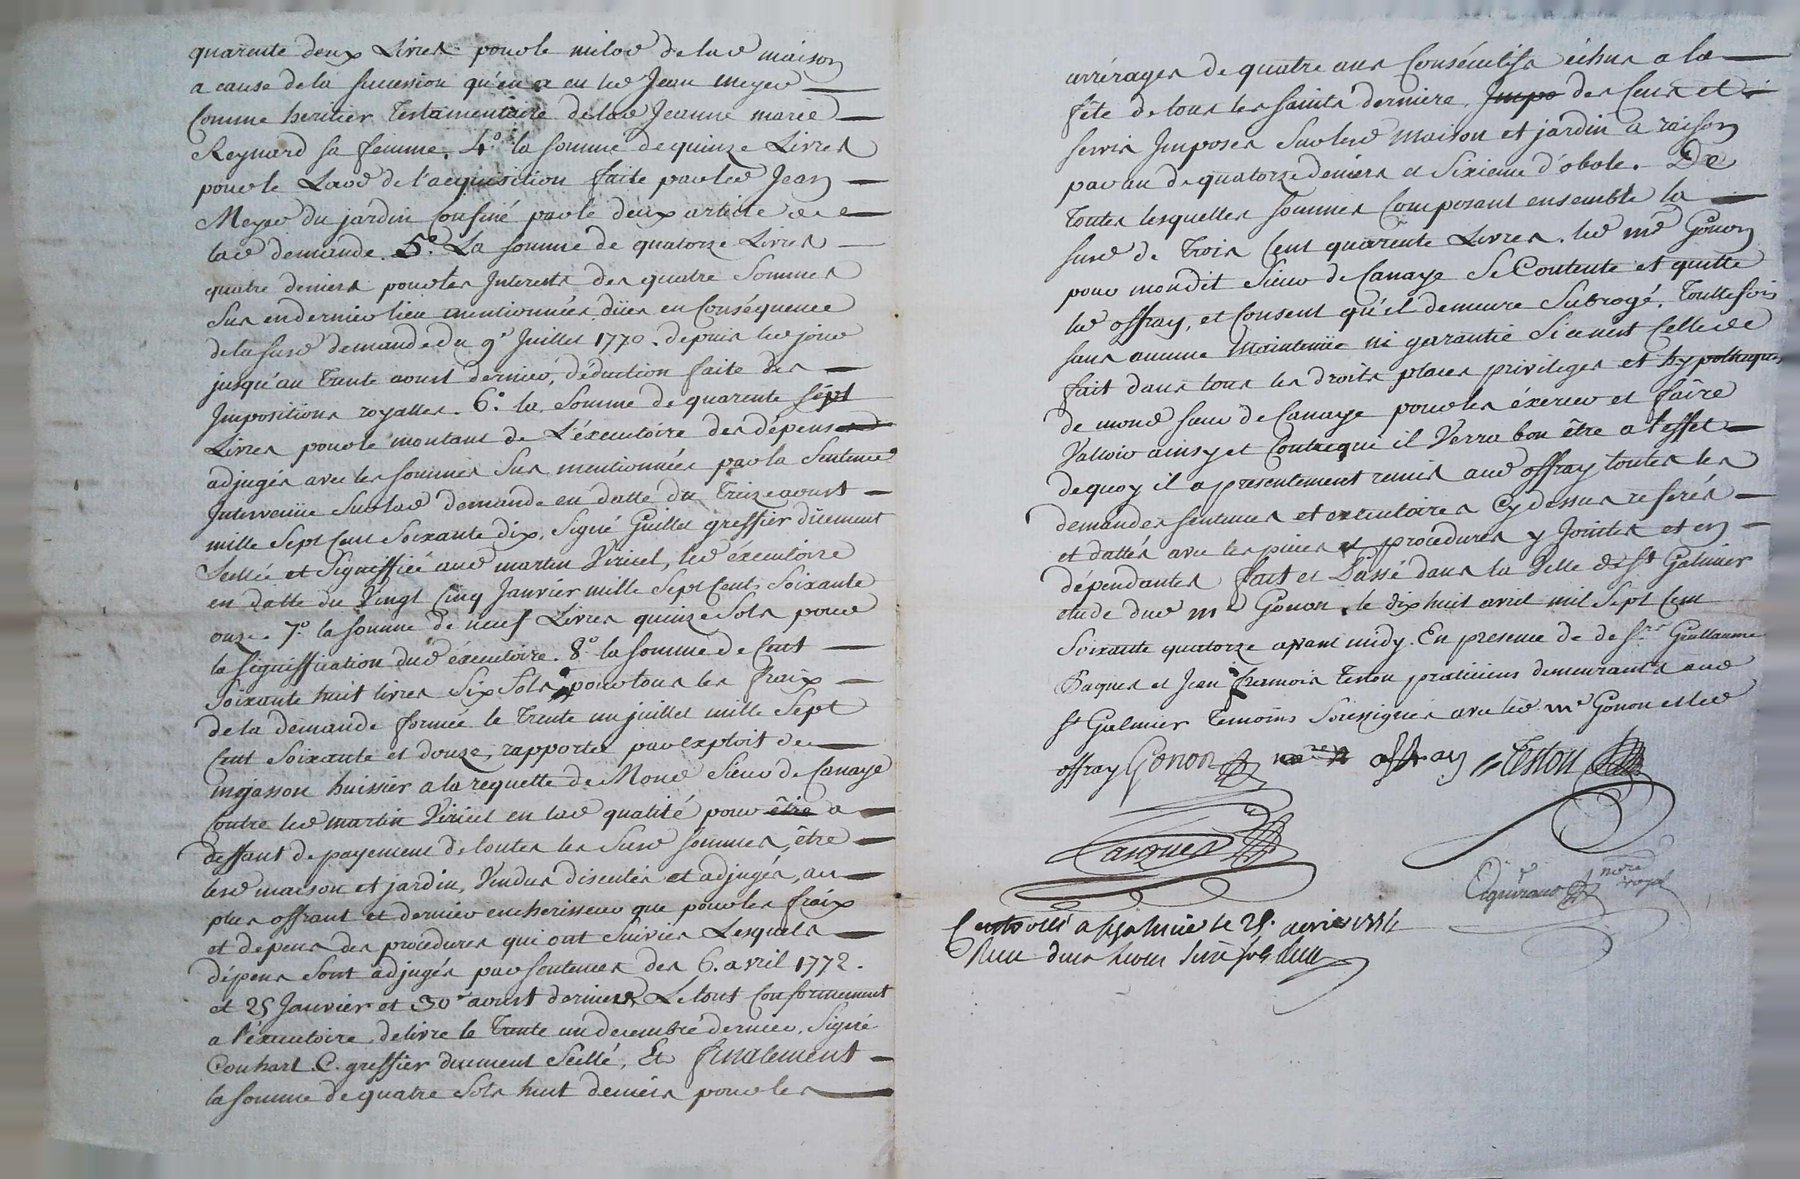 quarente deux Livres pour le milod de lad maison
a cause de la succession qu'en a eu led Jean Meyer
Comme heritier Testamentaire de lad Jeanne marie
Reynard sa femme. 4.° la somme de quinze Livres
pour le Laod de l'acquisition faite par led Jean
Meyer du jardin Confiné par le deux article de
lad demande. 5.° La somme de quatorze Livres
quatre deniers pour les Interests des quatre Sommes
Sus en dernier lieu mentionnées, dües en Conséquence
de la susd demande du 9.e Juillet 1770. depuis led jour
jusqu'au trente aoust dernier, déduction faite des
Impositions royalles. 6.° la Somme de quarente sept
Livres pour le montant de L'éxecutoire des dépens
adjugés avec les sommes Sus mentionnées par la Sentence
Intervenüe Sur lad demande en datte du Treize aoust
mille Sept Cent Soixante dix, Signé Guillet greffier düement
Scellée et Signiffiée aud martin Viricel, led éxecutoire
en datte du Vingt Cinq Janvier mille Sept Cent Soixante
onze. 7.° la somme de neuf Livres quinze Sols pour
la signiffication dud éxecutoire. 8.° la somme de Cent
Soixante huit livres Six Sols pour tous les fraix
de la demande formée le Trente un juillet mille Sept
Cent Soixante et douze, rapportée par exploit de
mijasson huissier a la requette de Mond Sieur de Canaye
Contre led martin Viricel en lad qualité pour être a
deffaut de payement de toutes les Susd Sommes, être
lesd maison et jardin, Vendus discutés et adjugés, au
plus offrant et dernier encherisseur que pour les fraix
et dépens des procédures qui ont Suivies Lesquels
dépens Sont adjugés par Sentences des 6. avril 1772.
et 25 Janvier et 30.e aoust derniers, Le tout Conformement
a l'éxecutoire delivré le Trente un decembre dernier, Signé
Couhart C. greffier düement Scellé, Et finalement
la Somme de quatre Sols huit deniers pour les
arrérages de quatre ans Consécutifs échus a la
fête de tous les Saints derniere, Impo des Cens et
servis Imposés Sur lesd Maison et jardin a raison
par an de quatorze deniers et Sixieme d'obole. De
Toutes lesquelles Sommes Composant ensemble la
susd de Trois Cent quarente Livres. led m.e Gonon
pour mondit Sieur de Canaye Se Contente et quitte
led offray, et Consent qu'il demeure Subrogé, Touttefois
sans aucune Maintenüe ni garantie Si ce n'est Celle de
fait dans tous les droits places privileges et hypotheques
de mond sieur de Canaye pour les éxercer et faire
Valloir ainsy et Contre qui il Verra bon être a l'effet
dequoy il a presentement remis aud offray toutes les
demandes sentences et executoires Cy dessus referés
et dattés avec les pieces et procedures y Jointes et en
dépendantes fait et Passé dans la Ville de St Galmier
etude dud m.e Gonon, le dix huit avril mil Sept Cent
Soixante quatorze avant midy. En presence de de Srs Guillaume
Paques et Jean François Teston praticiens demeurants aud
St Galmier Temoins Soussignés avec led m.e Gonon et led
offray Gonon offray Teston
Pasques
notre royal
Controllé a St galmier le 25. avril 1774